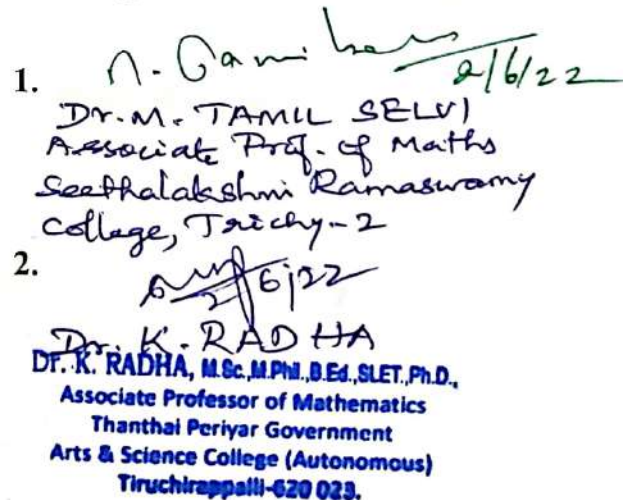 1.
2/6/22
Dr. M. TAMIL SELVI
Associate Prof. of Maths
Seethalakshmi Ramaswamy
College, Trichy-2
2.
2/6/22
Dr. K. RADHA
Dr. K. RADHA, M.Sc.,M.Phil.,B.Ed.,SLET.,Ph.D.,
Associate Professor of Mathematics
Thanthai Periyar Government
Arts & Science College (Autonomous)
Tiruchirappalli-620 023.